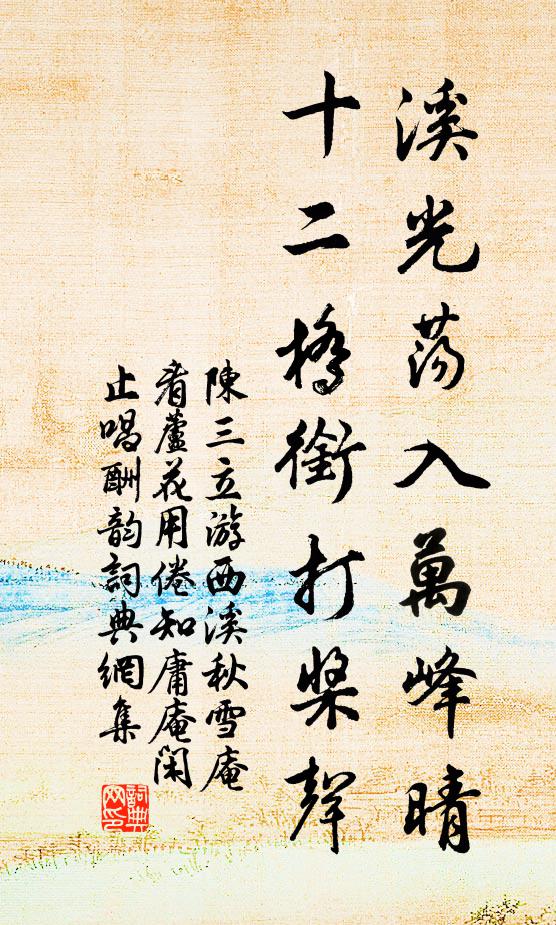 溪光荡入萬峰晴
十二橋銜打槳聲
陳三立游西溪秋雪庵
看蘆花用倦知庸庵闲
止唱酬韵詞典網集
詞典网印